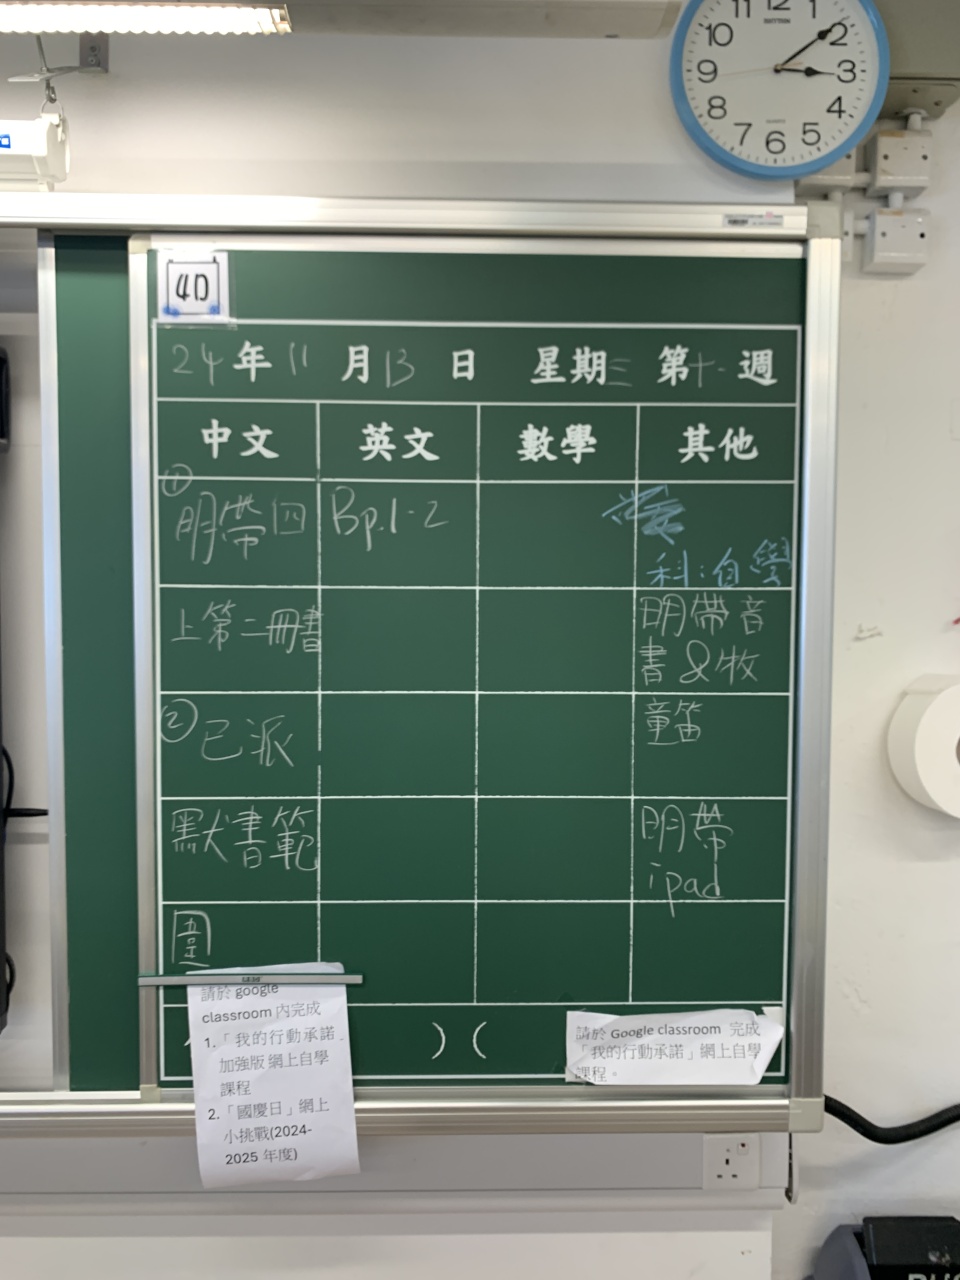 11 12 1
10 2
9 3
8 4
7 6 5
RHYTHM
QUARTZ
4D
24年11月13日 星期三 第十一週
中文 英文 數學 其他
①
明帶四 Bp.1-2
科:自學
上第二冊書
明帶音
書&牧
② 已派
童笛
默書範
明帶
ipad
圍
) (
請於 google
classroom 內完成
1.「我的行動承諾
加強版 網上自學
課程
2.「國慶日」網上
小挑戰(2024-
2025 年度)
請於 Google classroom 完成
「我的行動承諾」網上自學
課程。